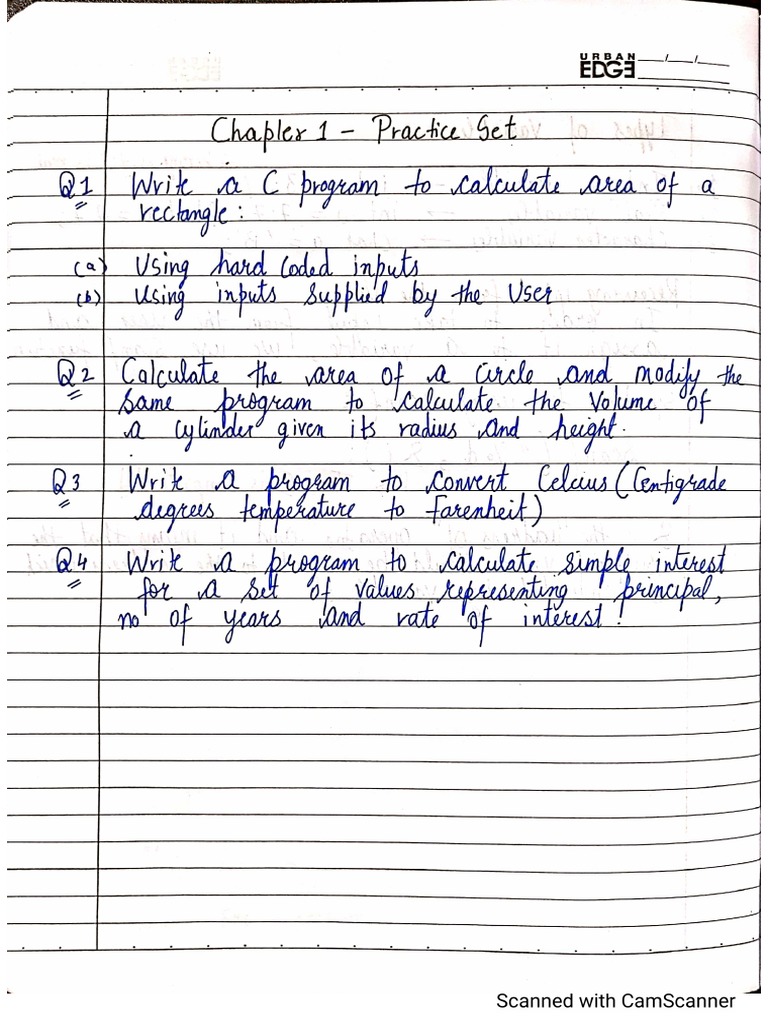 URBAN
EDGE
Chapter 1 - Practice Set
Q1 Write a C program to calculate area of a
rectangle:
(a) Using hard coded inputs
(b) Using inputs supplied by the User
Q2 Calculate the area of a circle and modify the
same program to calculate the Volume of
a cylinder given its radius and height.
Q3 Write a program to convert Celcius (Centigrade
degrees temperature to Farenheit)
Q4 Write a program to calculate simple interest
for a set of values representing principal,
no of years and rate of interest.
Scanned with CamScanner